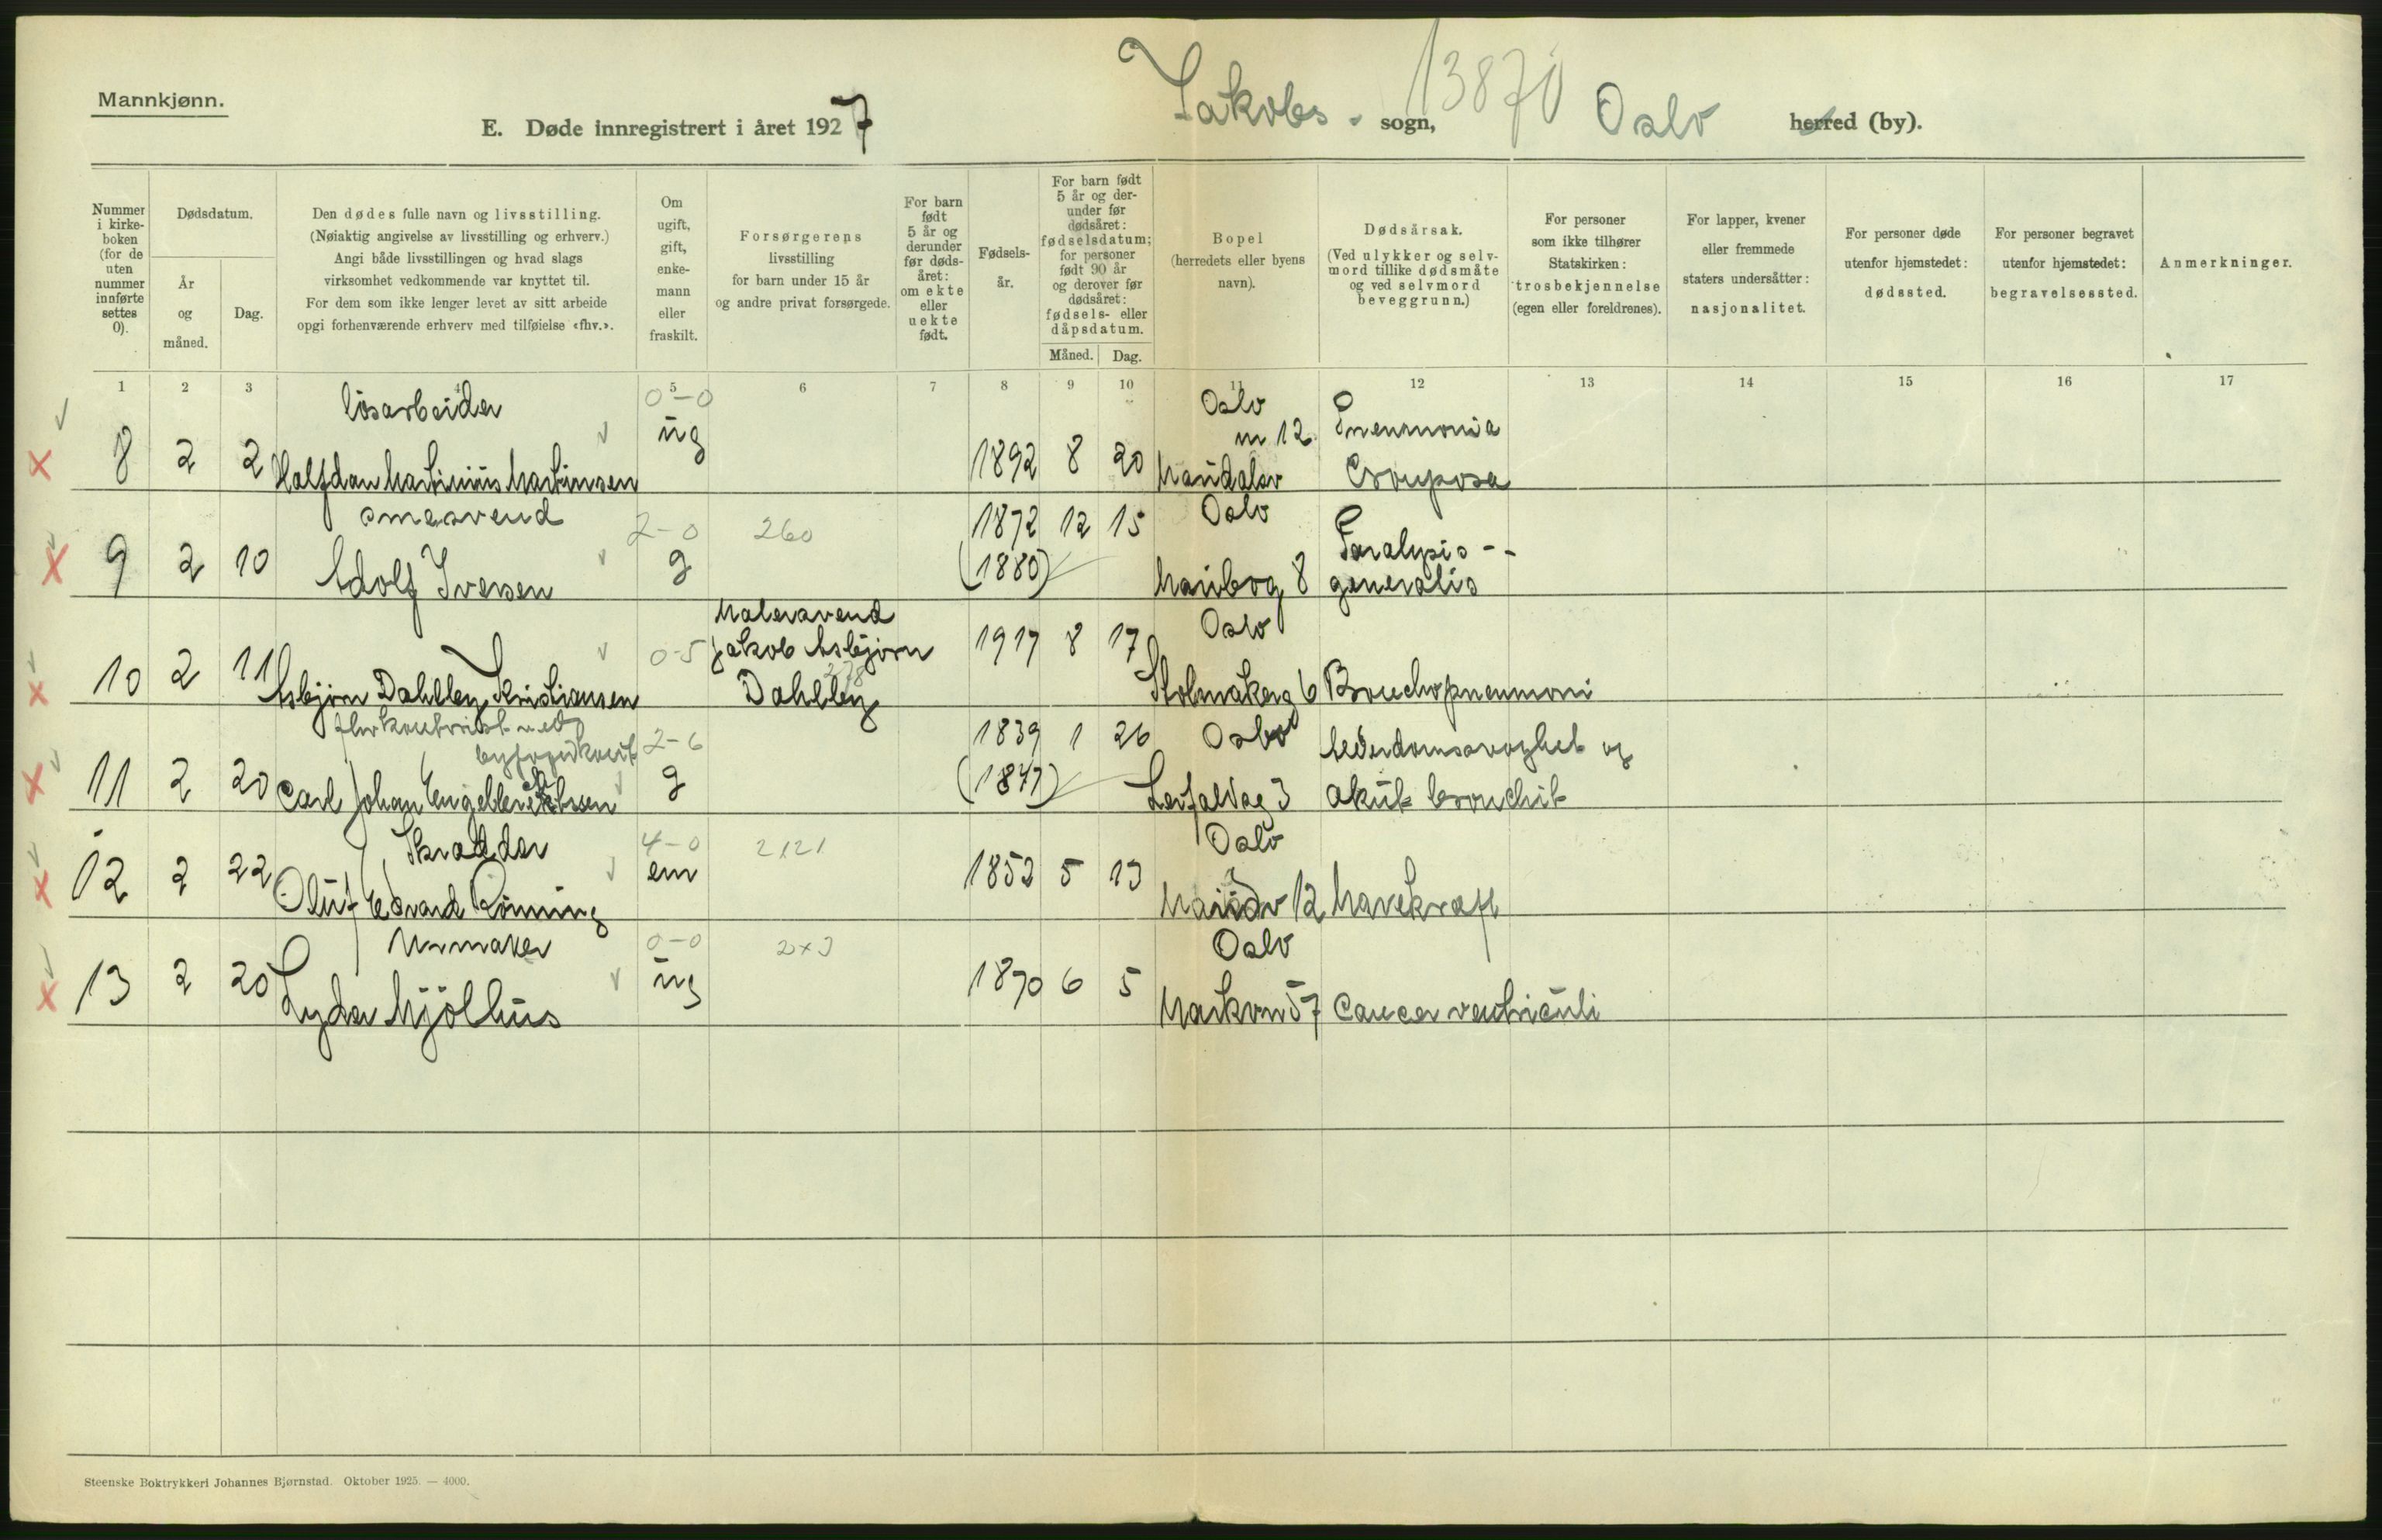 Mannkjønn.
E. Døde innregistrert i året 1927
Jakobs - sogn, 13870 Oslo herred (by).
Nummer i kirke-boken (for de uten nummer innførte settes 0).
Dødsdatum.
År og måned.
Dag.
Den dødes fulle navn og livsstilling.
(Nøiaktig angivelse av livsstilling og erhverv.)
Angi både livsstillingen og hvad slags
virksomhet vedkommende var knyttet til.
For dem som ikke lenger levet av sitt arbeide
opgi forhenværende erhverv med tilføielse «fhv.».
Om ugift, gift, enke-mann eller fraskilt.
Forsørgerens
livsstilling
for barn under 15 år
og andre privat forsørgede.
For barn født 5 år og derunder før døds-året: om ekte eller uekte født.
Fødsels-år.
For barn født 5 år og der-under før dødsåret: fødselsdatum; for personer født 90 år og derover før dødsåret: fødsels- eller dåpsdatum.
Måned. Dag.
Bopel
(herredets eller byens
navn).
Dødsårsak.
(Ved ulykker og selv-
mord tillike dødsmåte
og ved selvmord
beveggrunn.)
For personer
som ikke tilhører
Statskirken:
trosbekjennelse
(egen eller foreldrenes).
For lapper, kvener
eller fremmede
staters undersåtter:
nasjonalitet.
For personer døde
utenfor hjemstedet:
dødssted.
For personer begravet
utenfor hjemstedet:
begravelsessted.
Anmerkninger.
1 2 3 4 5 6 7 8 9 10 11 12 13 14 15 16 17
løsarbeider 0-0 Oslo Pneumonia
8 2 2 Halfdan Martinius Martinsen ug 1892 8 20 12 Crouposa
smedsvend 2-0 260 1872 12 15 Oslo Paralysis --
9 2 10 Adolf Iversen g (1880) Maribog 8 generalis
Malersvend
0-5 Jakob Asbjørn 1917 8 17 Oslo
10 2 11 Asbjørn Dahlby Kristiansen Dahlby Stolmakerg 6 Bronchopneumoni
fhv kontorist ved
2-6 1839 1 26 Oslo Alderdomssvaghet og
11 2 20 Carl Johan g (1847) 3 akut bronchit
Skrædder 4-0 2121 Oslo
12 2 22 Oluf Edvard Rønning em 1853 5 13 12 Mavekræft
Urmaker 0-0 2x3 Oslo
13 2 20 Lyder Mjølhus ug 1870 6 5 Markvn 57 Cancer ventriculi
Steenske Boktrykkeri Johannes Bjørnstad. Oktober 1925. — 4000.